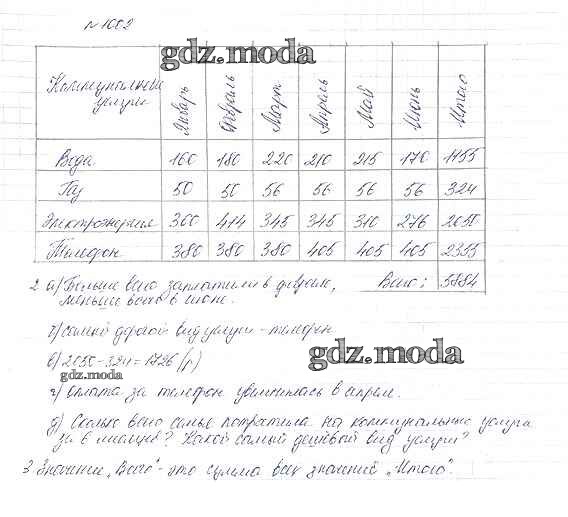 №1002
gdz.moda
Коммунальные услуги Январь Февраль Март Апрель Май Июнь Итого
Вода 160 180 220 210 215 170 1155
Газ 50 50 56 56 56 56 324
Электроэнергия 300 414 345 345 310 276 2050
Телефон 380 380 380 405 405 405 2355
Всего: 5884
2 а) Больше всего заплатили в феврале,
меньше всего в июне.
б) самый дорогой вид услуги - телефон
в) 2050-324=1726 (р)
gdz.moda
gdz.moda
г) оплата за телефон увеличилась в апреле.
д) Сколько всего семья потратила на коммунальные услуги
за 6 месяцев? Какой самый дешёвый вид услуги?
3 Значение „Всего" - это сумма всех значений „Итого".